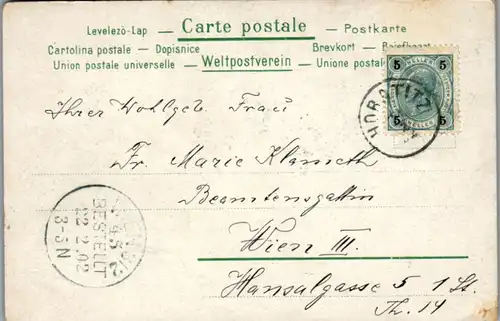 Levelező-Lap — Carte postale — Postkarte
Cartolina postale — Dopisnice Brevkort — Briefkaart
Union postale universelle — Weltpostverein — Unione postale
5 5
5 5
HELLER
Ihrer Wohlgeb. Frau
Fr. Marie Klameth
Beamtensgattin
Wien III.
Hansalgasse 5 1 St.
Th. 14
BESTELLT
22 2.02
3-3N